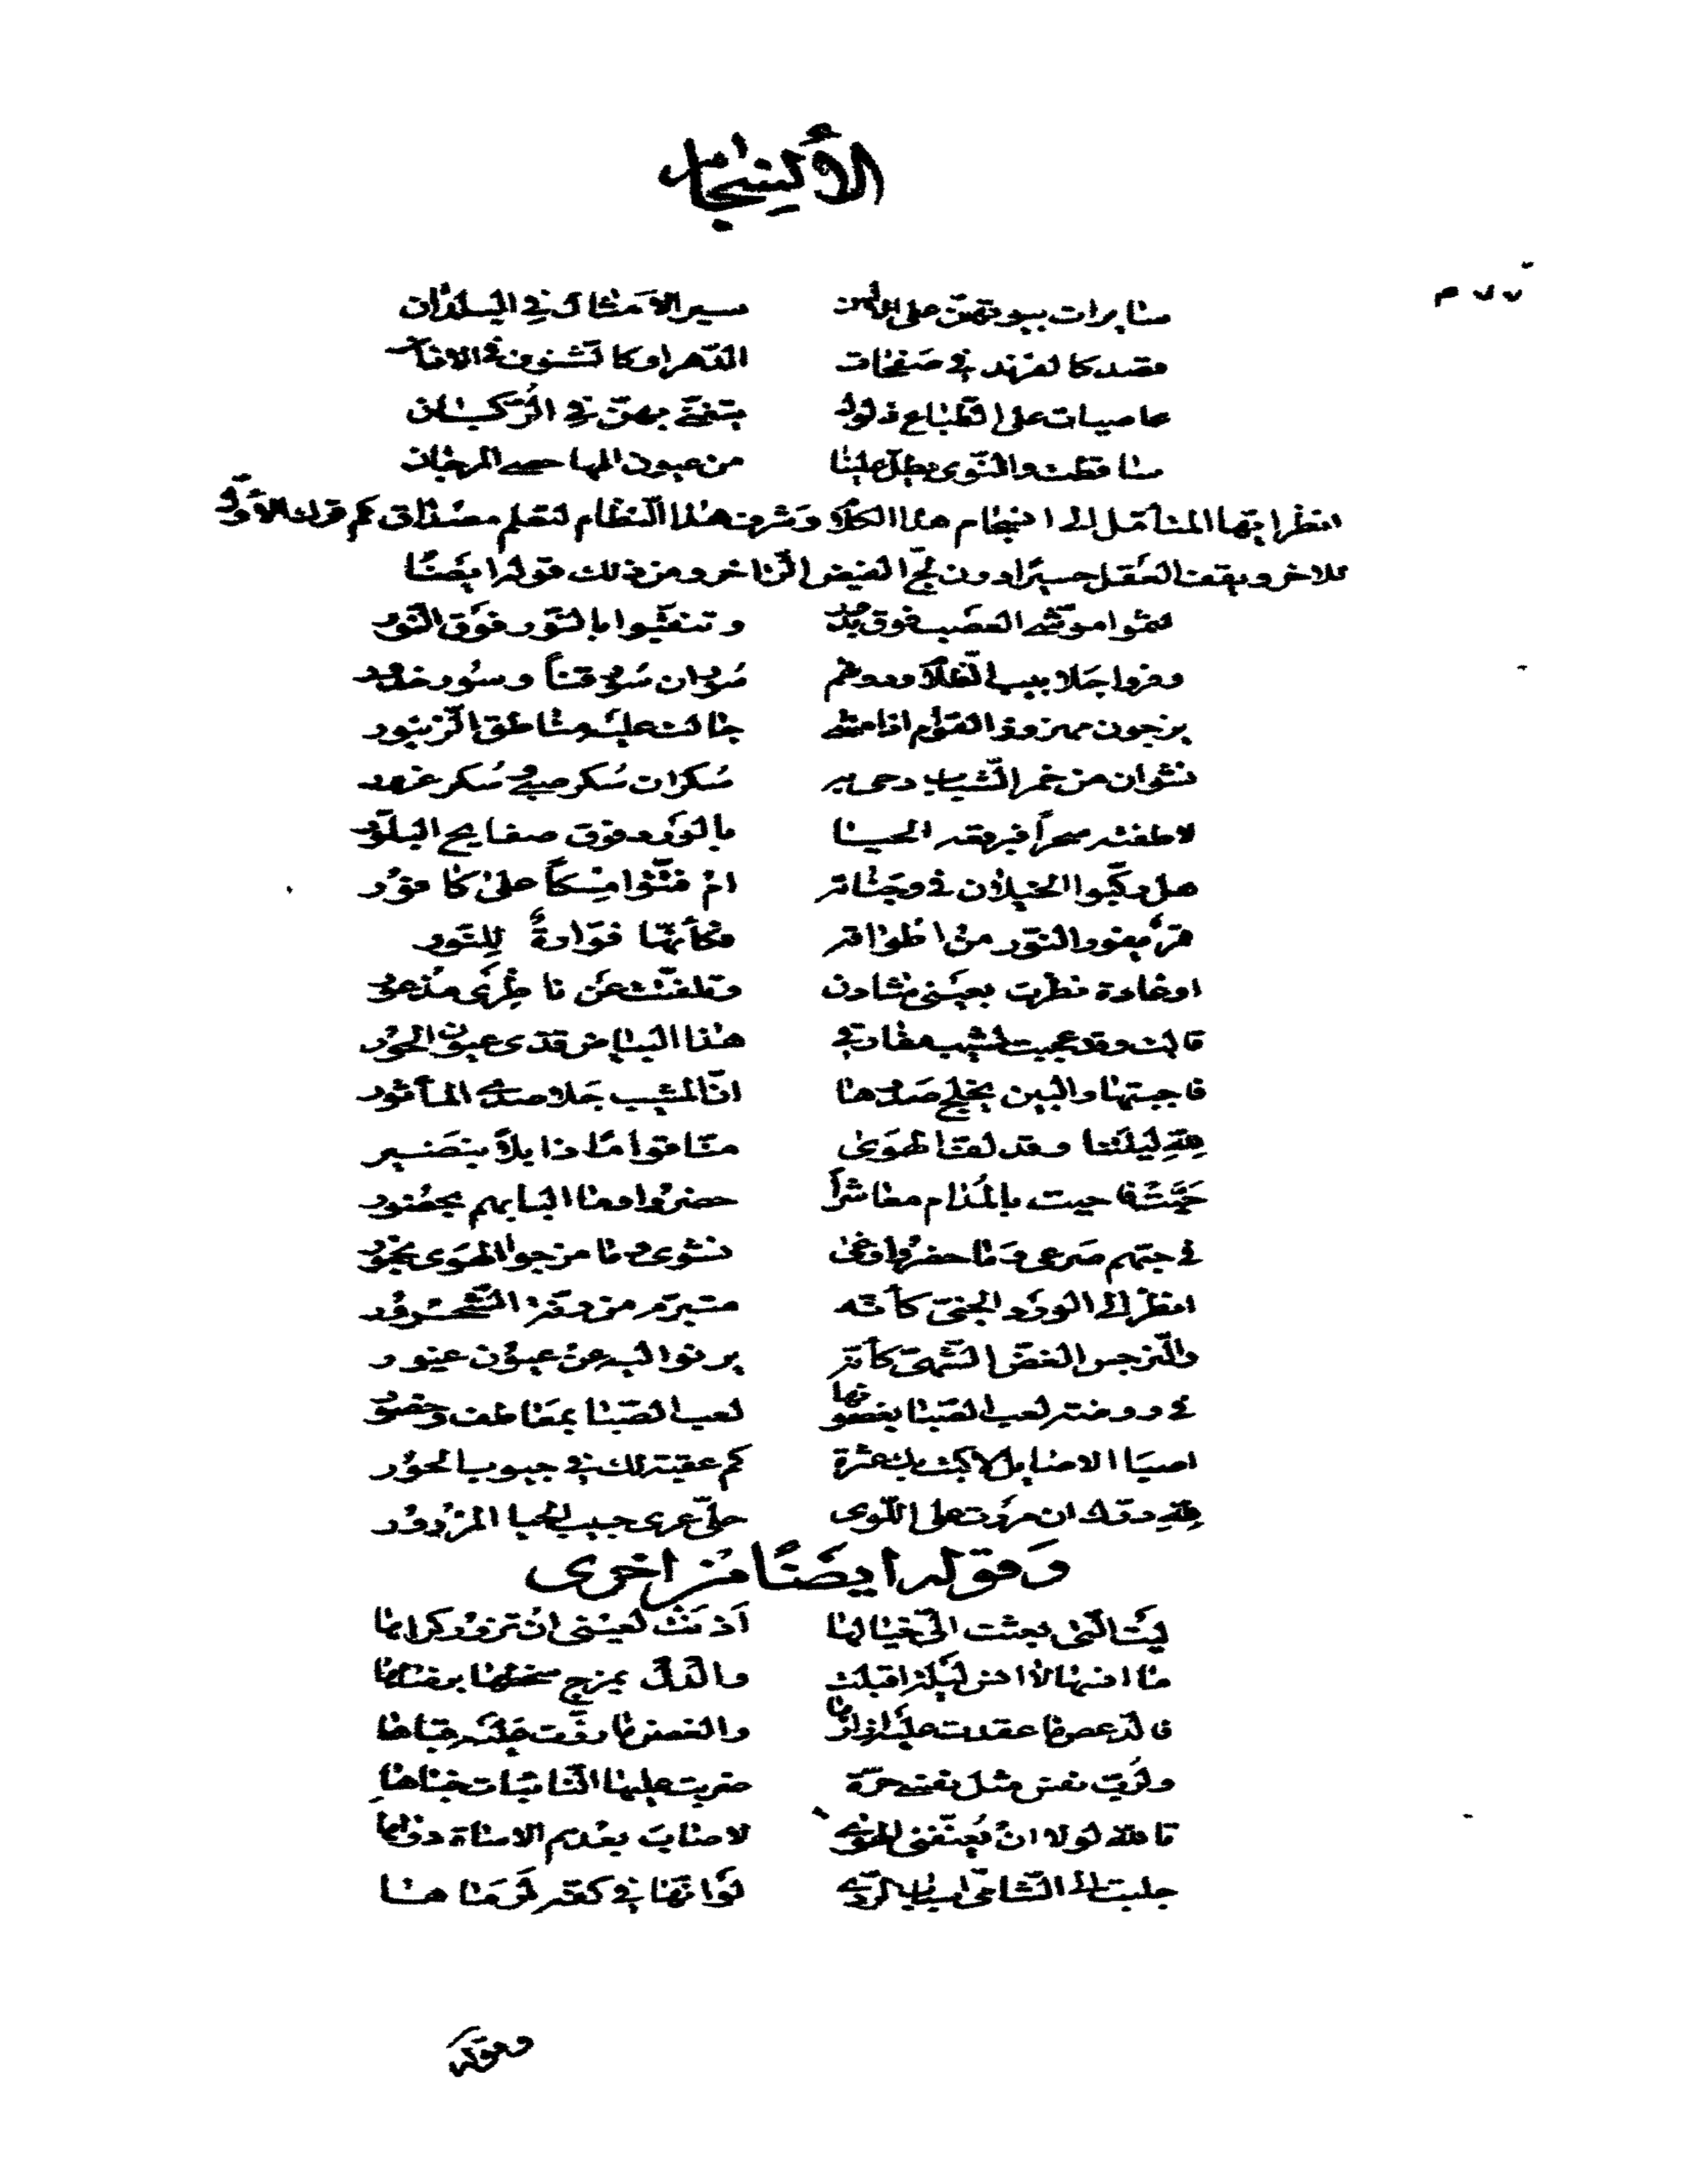 الأنسجام
سايرات بيوتهن على سير الامثال في البلدان
قصد كالفرند في صفحات الدهر او كالشنوف في الاذان
عاصيات على الطباع ذلول يتغنى بهن في الركبان
ساقطت والنوى يطل علينا من عيون المها حصى المرجان
انظر ايها المتأمل الى انسجام هذا الكلام وشرف هذا النظام لتعلم مصداق كم ترك الأول
للاخر ويقف العقل حسيرا دون لج الفيض الزاخر ومن ذلك قوله ايضا
لاثوا موشى العصب فوق بدور وتنقبوا بالنور فوق النور
جلابيب الظلام وعدوهم سوران سور قنا وسور خدور
يزجون القوام اذا مشى جالت عليه مناطق الزنبور
نشوان من خمر الشباب سكران سكر صبى وسكر غرور
لاطفته سحرا فبرقعه الحيا بالورد فوق صفايح البلور
هل وكبوا الخيلان في وجناته ام فتتوا مسكا على كافور
يفور النور من اطواقه فكأنها فوارة للنور
او غادة نظرت بعيني شادن وتلفتت عن ناظري مذعور
قالت وقد عجبت لشيب مفارقي هذا البياض قذى عيون الحور
فاجبتها والبين يخلج صدرها ان المشيب جلا صدى المأثور
لله ليلتنا وقد لف الهوى منا قواما ذابلا بنضير
حيث فاحيت بالمدام معاشرا حضروا وما البابهم بحضور
في حبهم صرعى وما حضروا وغى نشوى وما مزجوا الهوى بخمور
انظر الى الورد الجني كأنه متبرم من وفرة الشحرور
والنرجس الغض الشهي كأنه يرنو اليه عن عيون غيور
في روضة لعب الصبا بغصونها لعب الصبا بمعاطف وخصور
اصبا الاصايل لا كبت بك عثرة كم عقبة لك في جيوب الحور
لله درك ان مررت على اللوى حلي عرى جيب الحيا المزرور
وقوله ايضا من اخرى
ليت التي بعثت الي خيالها اذنت لعيني ان تزور كراها
ما انسها لا انس ليلة اقبلت والدل يمزج سخطها برضاها
فالدعص ما عقدت عليه ازارها والغصن ما زرت عليه قباها
ولرب نفس مثل نفسي حرة ضربت عليها النائبات خباها
تالله لولا ان يعنفني الهوى لاصاب بعدهم الاساة دواها
جلبت الى الشامي اسباب الردى لو انها في كفه لرماها
وقوله